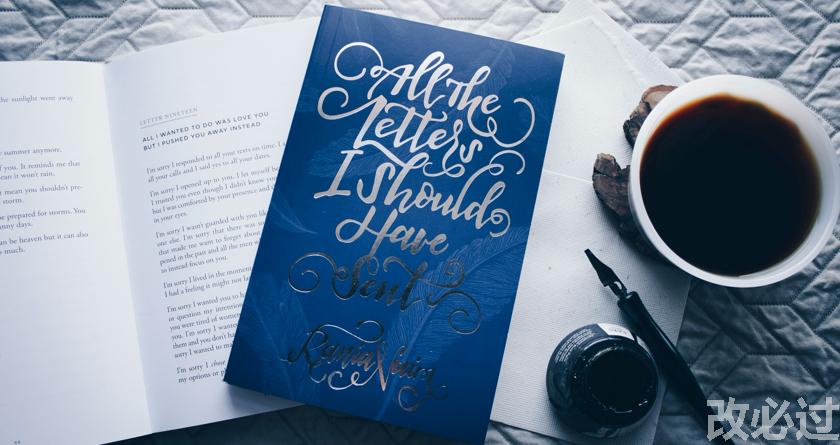 he sunlight went away
e summer anymore.
f you. It reminds me that
ean it won't rain.
t mean you shouldn't pre-
storm.
e prepared for storms. You
anny days.
an be heaven but it can also
s much.
64
LETTER NINETEEN
ALL I WANTED TO DO WAS LOVE YOU
BUT I PUSHED YOU AWAY INSTEAD
I'm sorry I responded to all your texts on time. I
all your calls and I said yes to all your dates.
I'm sorry I opened up to you, I let myself be
I trusted you even though I didn't know you
but I was comforted by your presence and th
in your eyes.
I'm sorry I wasn't guarded with you like
one else. I'm sorry that there was so
that made me want to forget about
pened in the past and all the men w
to instead focus on you.
I'm sorry I lived in the moment
I had a feeling it might not las
I'm sorry I wanted you to h
or question my intention
you were tired of women
them and you don't ha
sorry I wanted to ma
I'm sorry I chose
my options or p
All The
Letters
I Should
Have
Sent
Rania Naim
改必过